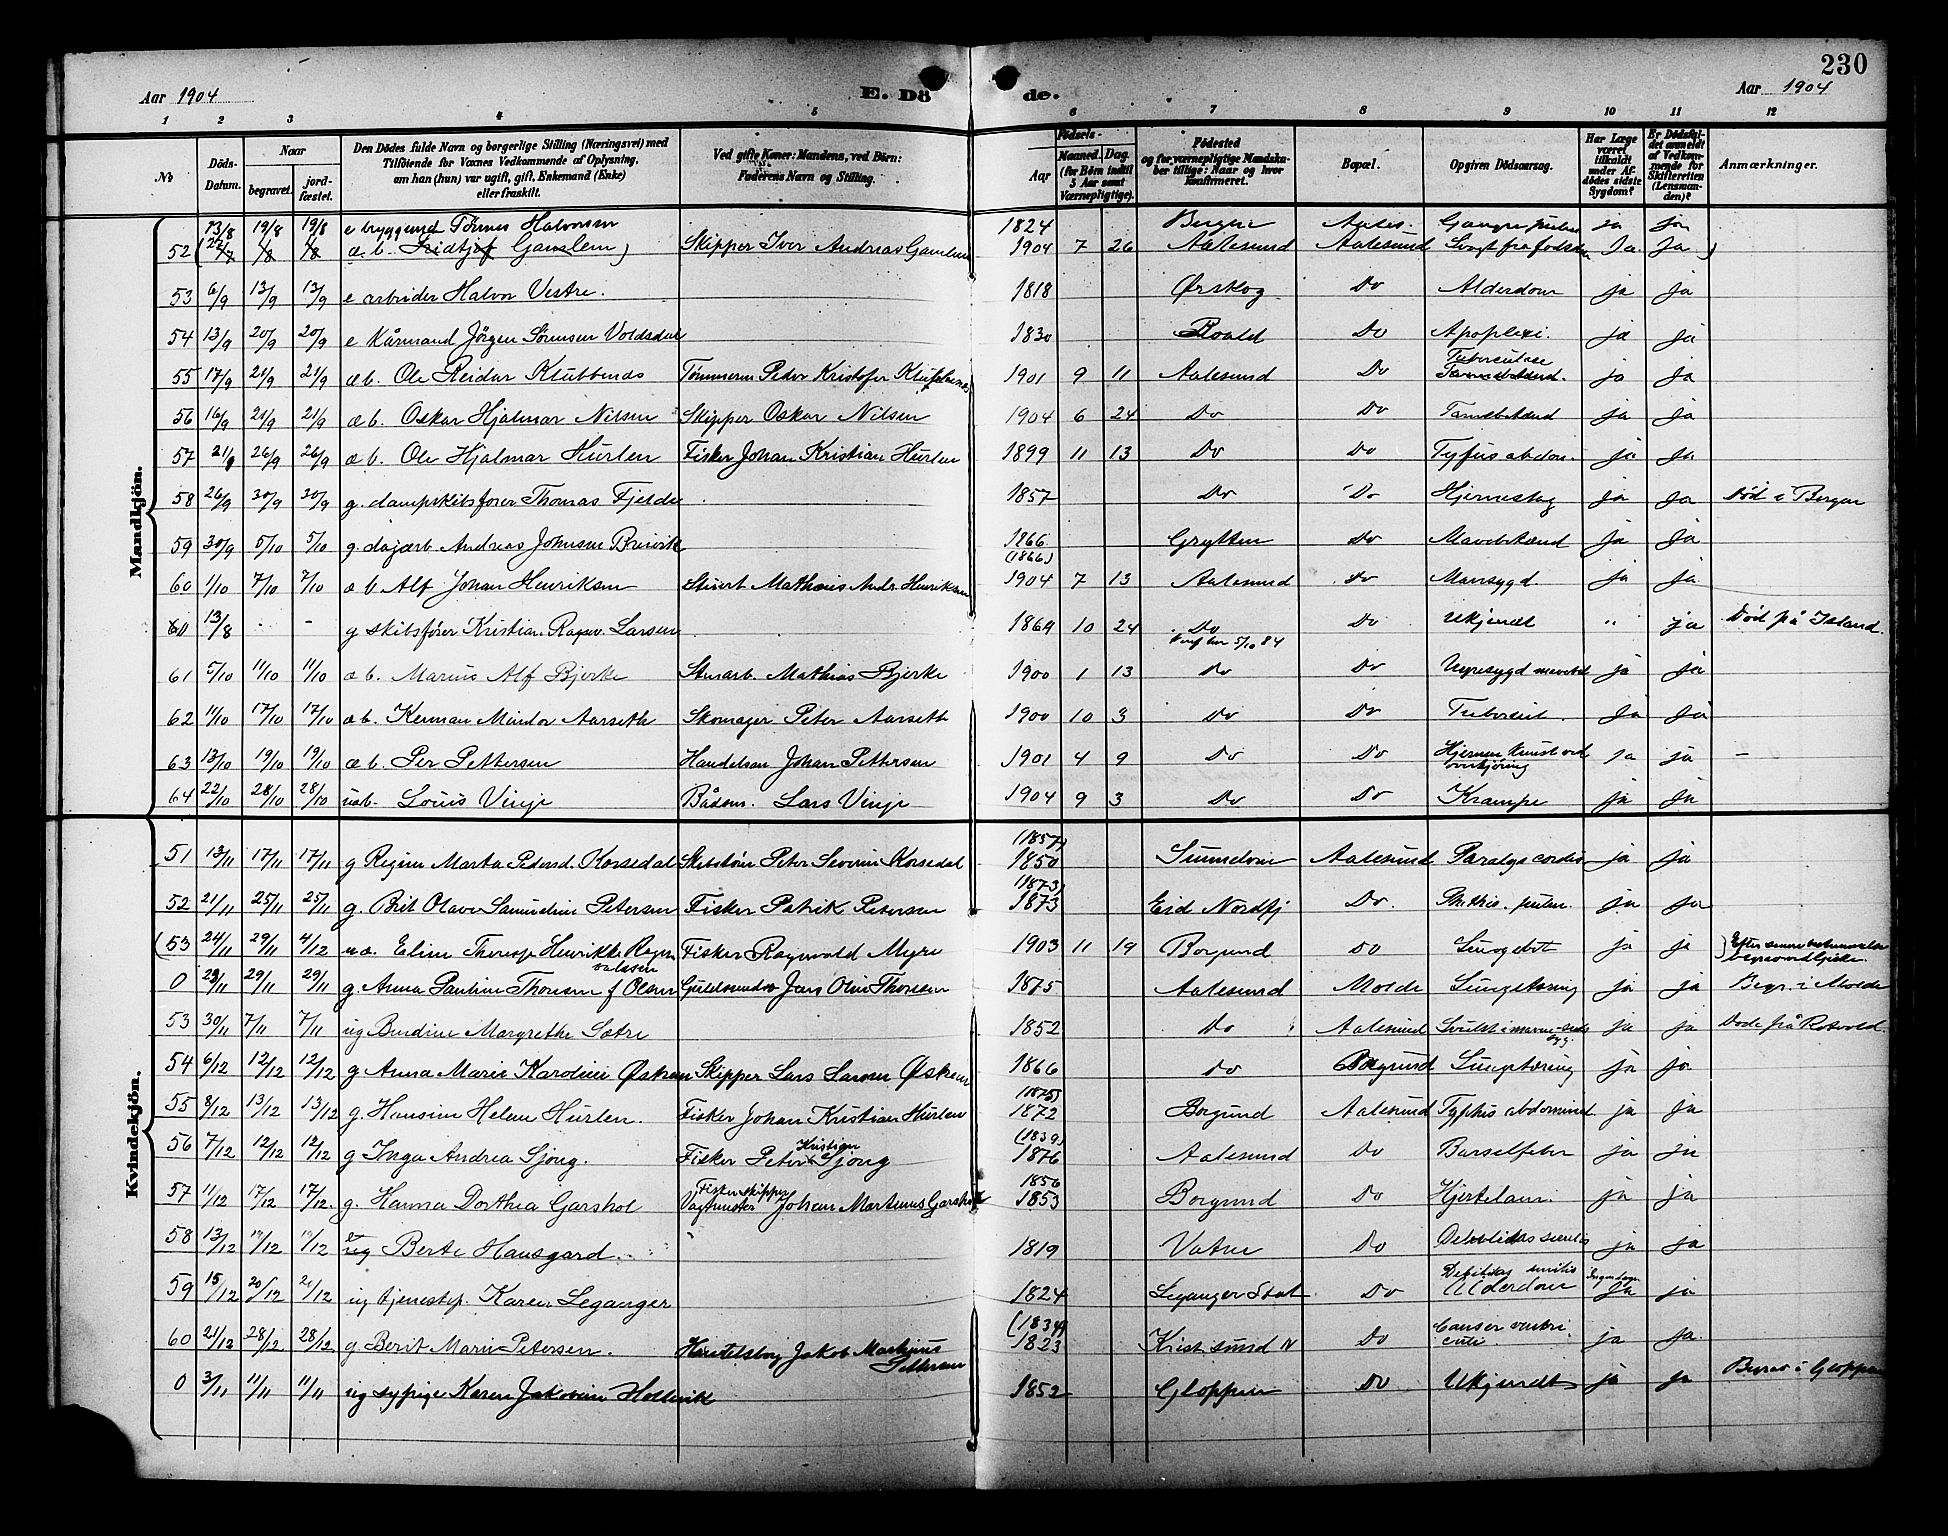 230
Aar 1904
E. Dö de.
Aar 1904
1 2 3 4 5 6 7 8 9 10 11 12
No
Döds-Datum.
Naar
begravet.
jord-fæstet.
Den Dödes fulde Navn og borgerlige Stilling (Næringsvei) med Tilföiende for Voxnes Vedkommende af Oplysning, om han (hun) var ugift, gift, Enkemand (Enke) eller fraskilt.
Ved gifte Koner: Mandens, ved Börn: Faderens Navn og Stilling.
Födsels-
Aar
Maaned. Dag
(for Börn indtil 5 Aar samt Værnepligtige).
Födested og for værnepligtige Mandskaber tillige: Naar og hvor konfirmeret.
Bopæl.
Opgiven Dödsaarsag.
Har Læge været tilkaldt under Afdödes sidste Sygdom?
Er Dödsfaldet anmeldt af Vedkommende for Skifteretten (Lensmanden)?
Anmærkninger.
Mandkjön.
13/8 19/8 19/8 e byggmd Tönnes Halvorsen 1824 Bergen Aales. ja ja
52 (27/7 /8 /8 æ.b. Fridtjof Gamlem) Skipper Iver Andreas Gamlem 1904 7 26 Aalesund Aalesund Svagt fra fødslen Ja ja )
53 6/9 13/9 13/9 e arbeider Halvor Vestre. 1818 Ørskog Do Alderdom ja ja
54 13/9 20/9 20/9 e Kårmand Jörgen Sörensen Voldsdal 1830 Roald Do Apoplexi. ja ja
55 17/9 21/9 21/9 æb. Ole Reidar Klubbenes Tømmerm Peder Kristofer Klubbenes 1901 9 11 Aalesund Do Tuberculose ja ja
56 16/9 21/9 21/9 æb. Oskar Hjalmar Nilsen Skipper Oskar Nilsen 1904 6 24 Do Do Tarmebetænd ja ja
57 21/9 26/9 26/9 æb. Ole Hjalmar Hurlen Fisker Johan Kristian Hurlen 1899 11 13 Do Do Tyfus abdom. ja ja
58 26/9 30/9 30/9 g. dampskibsfører Thomas Fjelde 1857 Do Do Hjerneslag ja ja Død i Bergen
59 30/9 5/10 5/10 g. dagarb Andreas Johnsen Breivik 1866 (1866) Grytten Do Mavebetænd ja ja
60 1/10 7/10 7/10 æb Alf Johan Henriksen Stuert Mathæus Andr. Henriksen 1904 7 13 Aalesund Do Mavesygd ja ja
60 13/8 - - g skibsfører Kristian Ragnv. Larsen 1869 10 24 Do 5/10 84 Do Ukjendt " ja Død på Island.
61 5/10 11/10 11/10 æb. Marius Alf Bjerke Stuarb. Mathias Bjerke 1900 1 13 Do Do ja ja
62 11/10 17/10 17/10 æb. Kerman Mindor Aarseth Skomager Peter Aarseth 1900 10 3 Do Do Tubercul. Ja Ja
63 13/10 19/10 19/10 æb. Per Pettersen Handelsm Johan Pettersen 1901 4 9 Do Do Hjernen knust ved overkjöring Ja ja -
64 22/10 28/10 28/10 uæb. Louis Vinje Bådsm. Lars Vinje 1904 9 3 Do Do Krampe ja ja
Kvindekjön.
51 13/11 17/11 17/11 g Regine Marta Pedersd. Korsedal Skibstöm Peter Severin Korsedal (1857) 1850 Aalesund Paralys cordis ja ja
52 21/11 25/11 25/11 g. Brit Olave Samueline Petersen Fisker Patrik Petersen (1873) 1873 Eid Nordfj Do. Phthis. pulm. ja ja
(53 24/11 29/11 4/12 uæ. Eline Therese Henrikke Ragnvaldsen Fisker Ragnvald Myre 1903 11 19 Borgund Do Lungebet ja ja
0 23/11 29/11 29/11 g Anna Pauline Thoresen f Olsen Guldsmedsv Jens Olai Thoresen 1875 Aalesund Molde Lungetæring ja ja Begr. i Molde
53 30/11 7/11 7/11 ug Berdine Margrethe Sætre 1852 Do Aalesund Svulst i mave- ja ja Døde på Rosvold.
54 6/12 12/12 12/12 g Anna Marie Karoline Østrem Skipper Lars Larsen Østrem 1866 Do Borgund Lungetæring ja ja
55 8/12 13/12 13/12 g. Hansine Helene Hurlen. Fisker Johan Kristian Hurlen (1875) 1872 Borgund Aalesund Typhus abdominal. ja ja
56 7/12 12/12 12/12 g Inga Andrea Sjong. Fisker Peter Kristian Sjong (1839) 1876 Aalesund Do Barselfeber ja ja
57 11/12 17/12 17/12. g. Hanna Dorthea Garshol Fiskerskipper Vagtmester Johan Martinus Garshol 1856 1853 Borgund Do Hjertelam. ja ja
58 13/12 19/12 19/12 ug Berte Hausgard. 1819 Vatne Do Debilitas senilis ja ja
59 15/12 20/12 21/12 ug tjenestep. Karen Leganger 1824 Leganger Stat Do Debilitas senilis Alderdom Ja ja
60 21/12 28/12 28/12 g. Berit Marie Petersen. Handelsborg Jakob Markus Pettersen (1834) 1823 Krist.sund N Do Cancer ventriculi ja ja
0 3/11 11/11 11/11 ug sypige Karen Jakobine Hollevik 1852 Gloppen Do Ukjendt ja ja Begrav i Gloppen